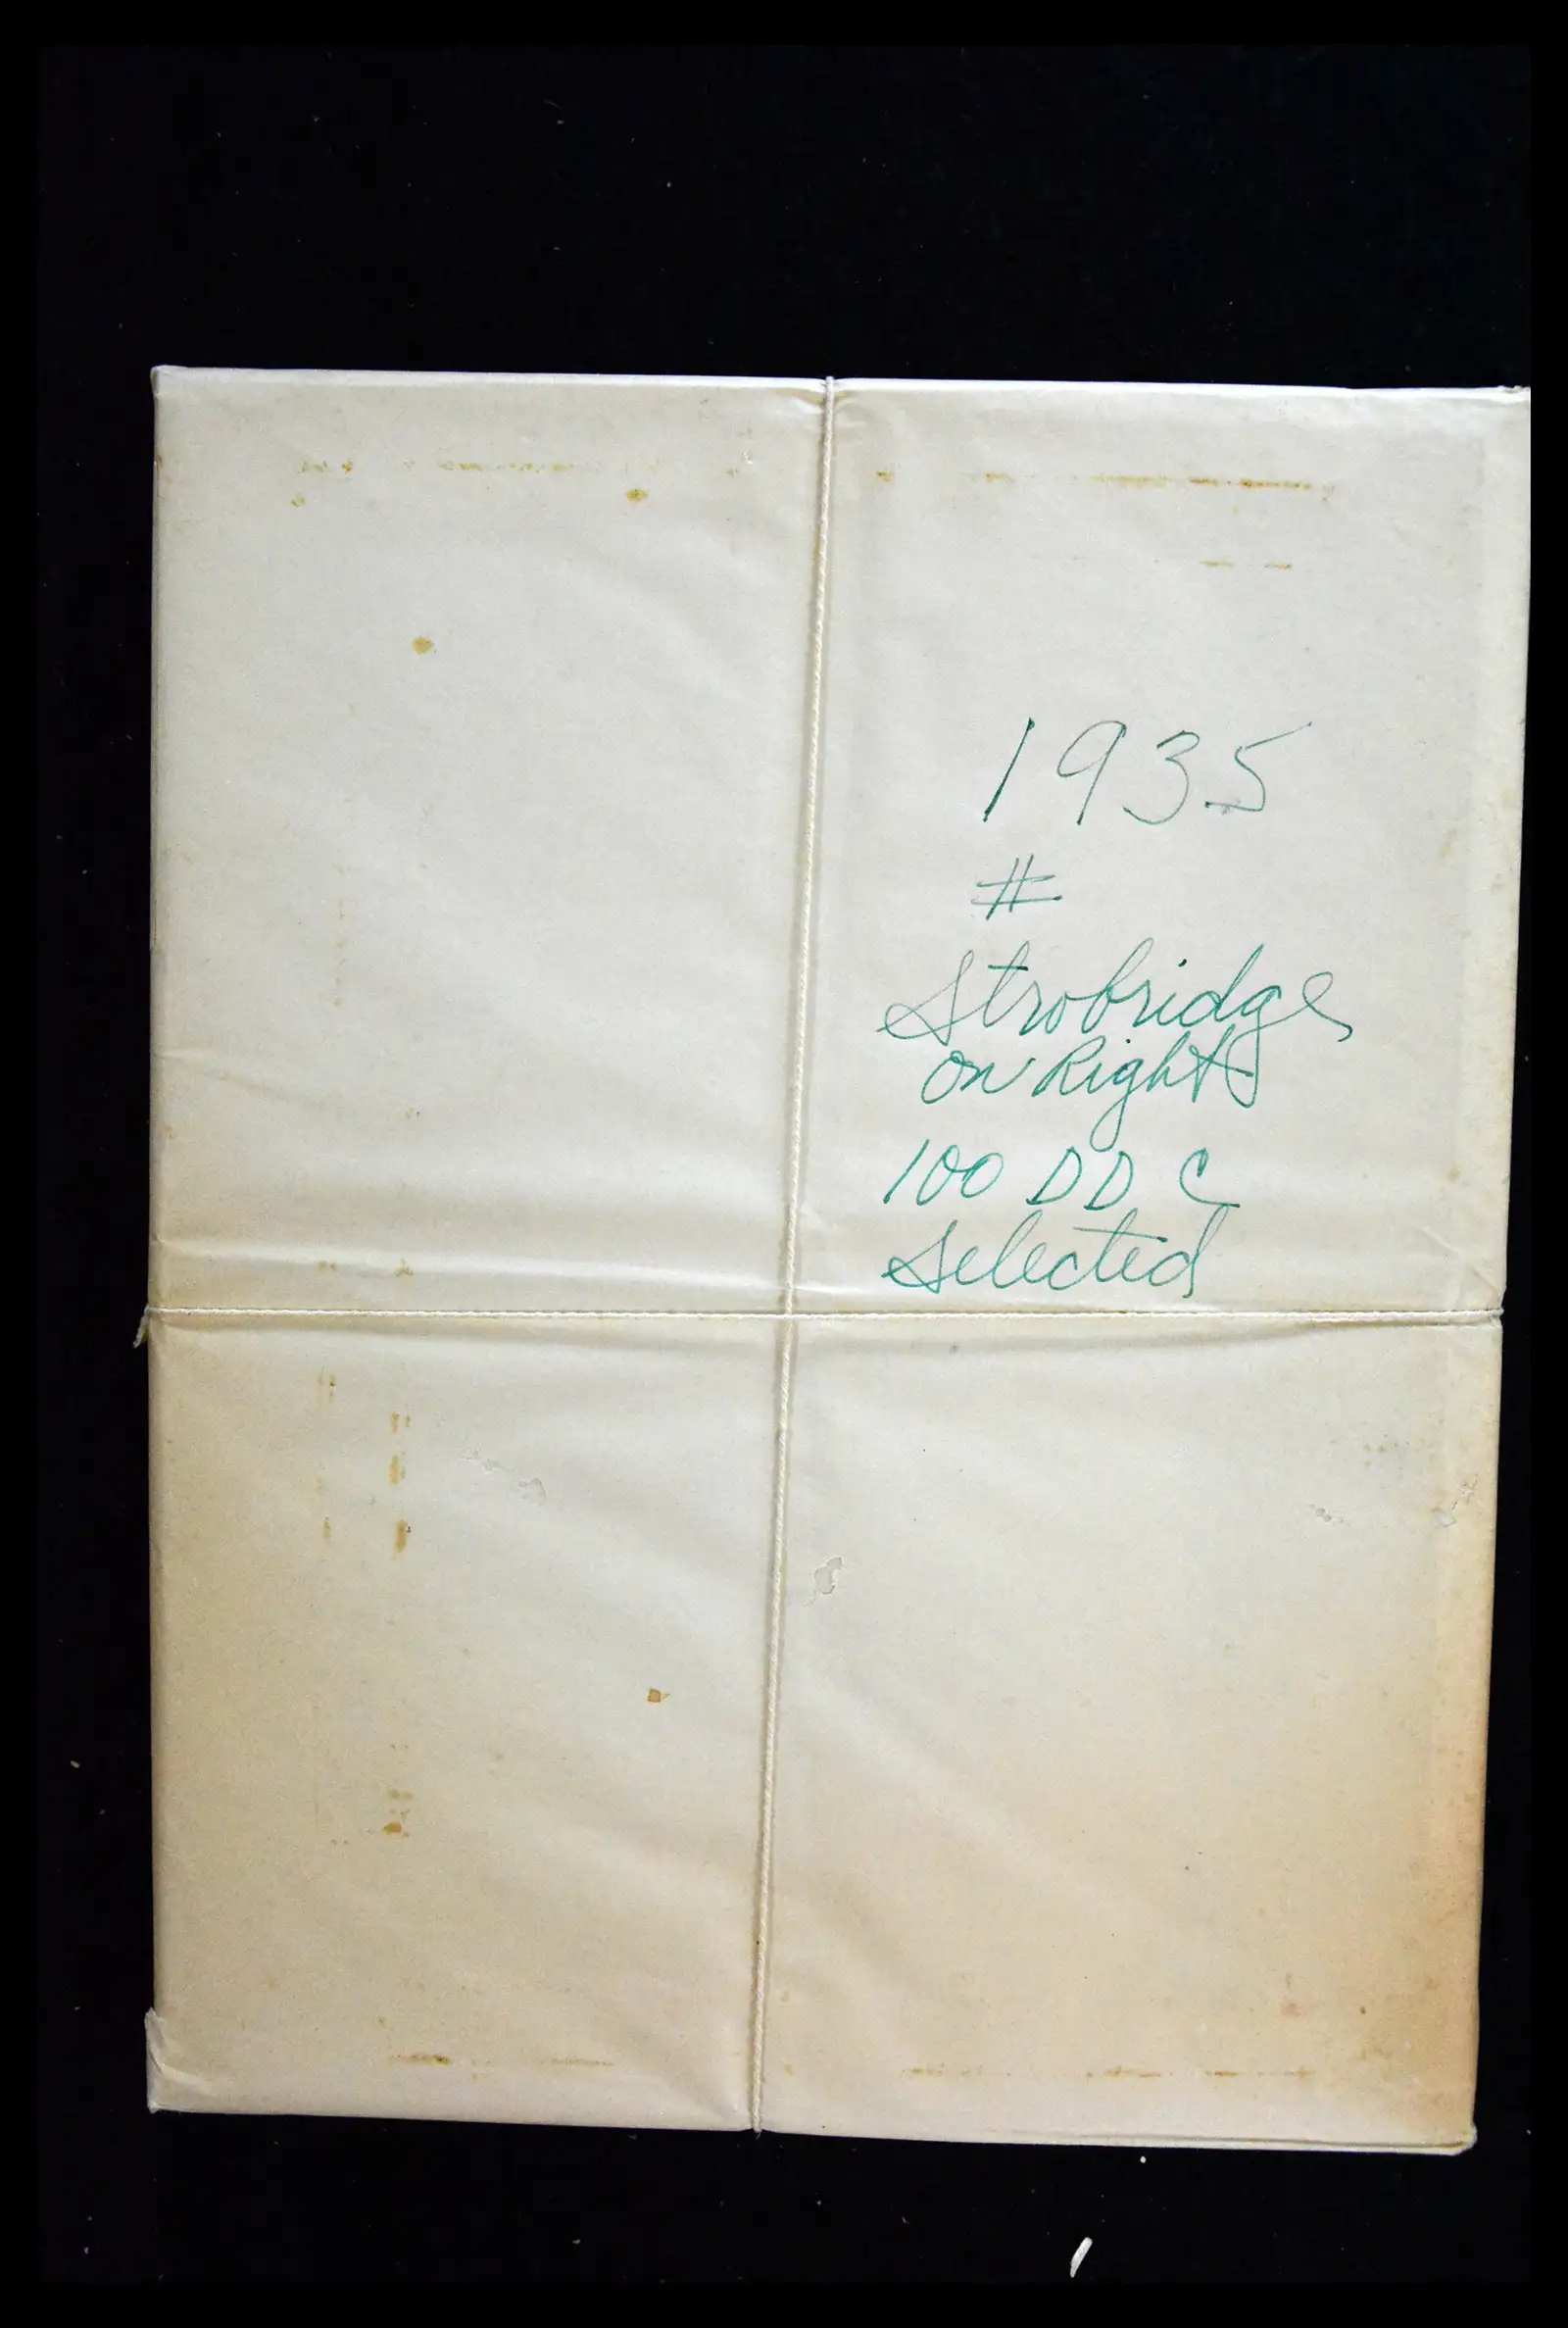 1935
#
Strobridge
on Right
100 DD C
Selected